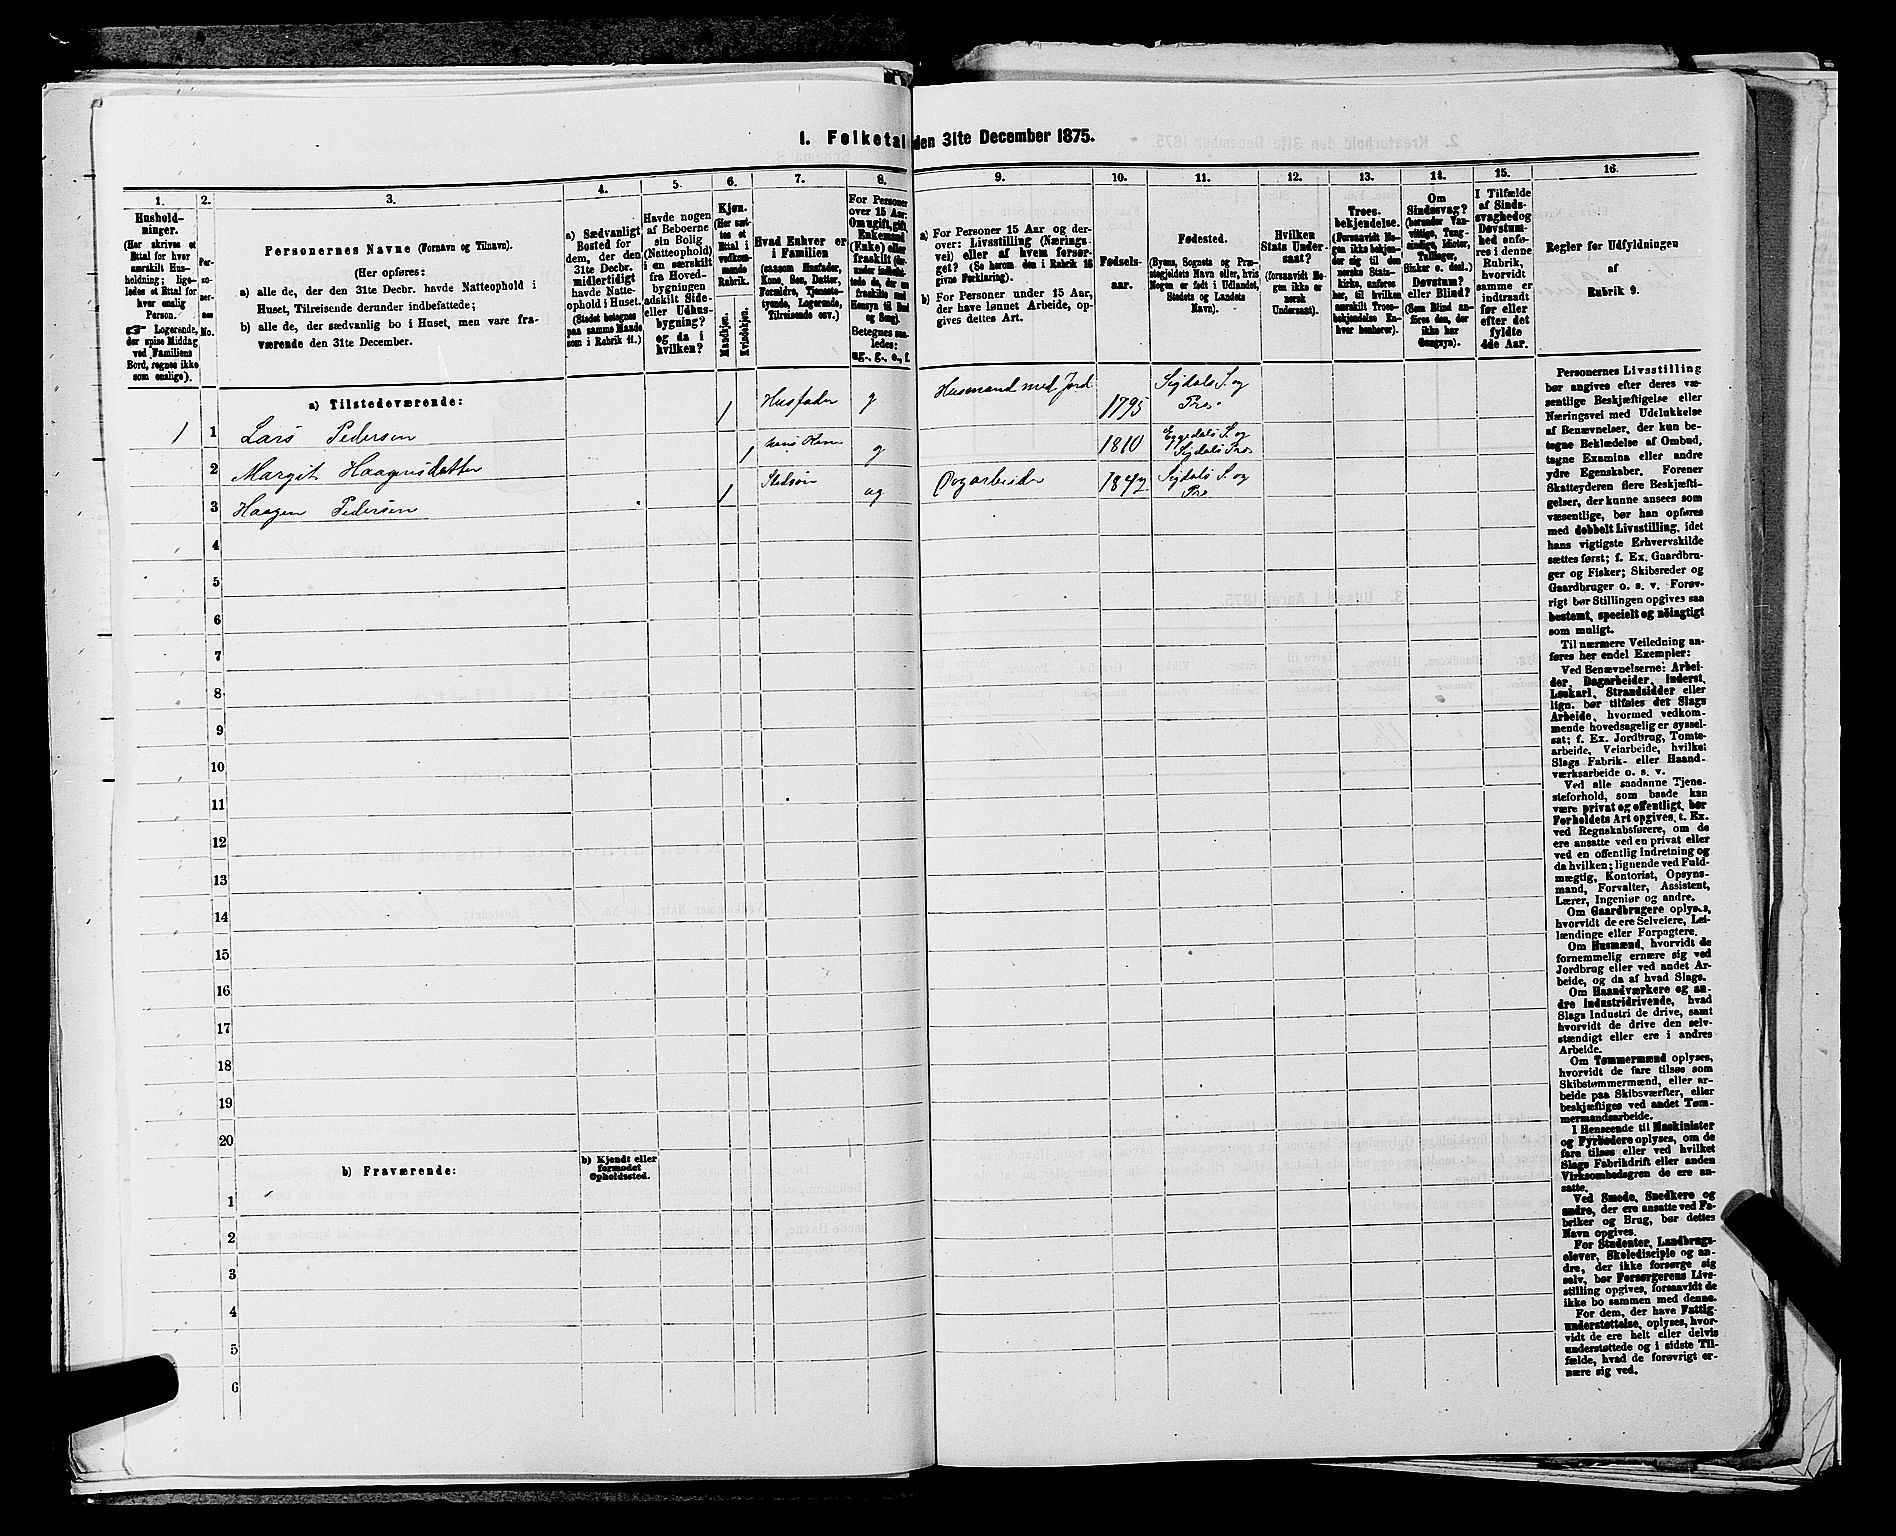 1. Folketal den 31te December 1875.
1.
Hushold-
ninger.
(Her skrives et
Ettal for hver
særskilt Hus-
holdning; lige-
ledes et Ettal for
hver enslig
Person.
☞ Logerende,
der spise Middag
ved Familiens
Bord, regnes ikke
som enslige).
2.
Per-
so-
ner-
nes
No.
3.
Personernes Navne (Fornavn og Tilnavn).
(Her opføres:
a) alle de, der den 31te Decbr. havde Natteophold i
Huset, Tilreisende derunder indbefattede;
b) alle de, der sædvanlig bo i Huset, men vare fra-
værende den 31te December.
4.
a) Sædvanligt
Bosted for
dem, der den
31te Decbr.
midlertidigt
havde Natte-
ophold i Huset.
(Stedet betegnes
paa samme Maade
som i Rubrik 11.)
5.
Havde nogen
af Beboerne
sin Bolig
(Natteophold)
i en særskilt
fra Hoved-
bygningen
adskilt Side-
eller Udhus-
bygning?
og da i
hvilken?
6.
Kjøn.
(Her sæt-
tes et
Ettal i
vedkom-
mende
Rubrik.
Mandkjøn.
Kvindekjøn.
7.
Hvad Enhver er
i Familien
(saasom Husfader,
Kone, Søn, Datter,
Forældre, Tjeneste-
tyende, Logerende,
Tilreisende osv.)
8.
For Personer
over 15 Aar:
Om ugift, gift,
Enkemand
(Enke) eller
fraskilt
Betegnes saa-
ledes:
ug., g., e., f.
9.
a) For Personer 15 Aar og der-
over: Livsstilling (Nærings-
vei) eller af hvem forsør-
get? (Se herom den i Rubrik 16
givne Forklaring).
b) For Personer under 15 Aar,
der have lønnet Arbeide, op-
gives dettes Art.
10.
Fødsels-
aar.
11.
Fødested.
(Byens, Sognets og Præ-
stegjeldets Navn eller, hvis
Nogen er født i Udlandet,
Stedets og Landets
Navn).
12.
Hvilken
Stats Under-
saat?
(forsaavidt No-
gen ikke er
norsk
Undersaat).
13.
Troes-
bekjendelse.
(Forsaavidt No-
gen ikke bekjen-
der sig til den
norske Stats-
kirke, anføres
her, til hvilken
særskilt Troes-
bekjendelse En-
hver henhører).
14.
Om
Sindssvag?
(herunder Van-
vittige, Tung-
sindige, Idioter,
Tullinger,
Sinker o. desl.)
Døvstum?
eller Blind?
(Som Blind an-
føres den, der
ikke har
Gangsyn).
15.
I Tilfælde
af Sinds-
svaghed og
Døvstum-
hed anfø-
res i denne
Rubrik,
hvorvidt
samme er
indtraadt
før eller
efter det
fyldte
4de Aar.
16.
Regler for Udfyldningen
af
Rubrik 9.
a) Tilstedeværende:
1 1 Lars Pedersen 1 Husfader g Husmand med Jord 1795 Sigdals S. og Præs.
2 Margit Haagensdatter 1 hans Kone g 1810 Eggedals S. og Sigdals Præs.
3 Haagen Pedersen 1 Stedsøn ug Dagarbeider 1847 Sigdals S. og Præs.
4
5
6
7
8
9
10
11
12
13
14
15
16
17
18
19
20
b) Fraværende:
b) Kjendt eller
formodet
Opholdssted.
1
2
3
4
5
6
Personernes Livsstilling
bør angives efter deres væ-
sentlige Beskjæftigelse eller
Næringsvei med Udelukkelse
af Benævnelser, der kun be-
tegne Beklædelse af Ombud,
tagne Examina eller andre
ydre Egenskaber. Forener
Skatteyderen flere Beskjæfti-
gelser, der kunne ansees som
væsentlige, bør han opføres
med dobbelt Livsstilling, idet
hans vigtigste Erhvervskilde
sættes først; f. Ex. Gaardbru-
ger og Fisker; Skibsreder og
Gaardbruger o. s. v. Forøv-
rigt bør Stillingen opgives saa
bestemt, specielt og nøiagtigt
som muligt.
Til nærmere Veiledning an-
føres her endel Exempler:
Ved Benævnelserne: Arbei-
der, Dagarbeider, Inderst,
Løskarl, Strandsidder eller
lign. bør tilføies det Slags
Arbeide, hvormed vedkom-
mende hovedsagelig er syssel-
sat; f. Ex. Jordbrug, Tomte-
arbeide, Veiarbeide, hvilket
Slags Fabrik- eller Haand-
værksarbeide o. s. v.
Ved alle saadanne Tjene-
steforhold, som baade kan
være privat og offentligt, bør
Forholdets Art opgives, t. Ex.
ved Regnskabsførere, om de
ere ansatte ved en privat eller
ved en offentlig Indretning og
da hvilken; lignende ved Fuld-
mægtig, Kontorist, Opsyns-
mand, Forvalter, Assistent,
Lærer, Ingeniør og andre.
Om Gaardbrugere oplyses,
hvorvidt de ere Selveiere, Lei-
lændinge eller Forpagtere.
Om Husmænd, hvorvidt de
fornemmelig ernære sig ved
Jordbrug eller ved andet Ar-
beide, og da af hvad Slags.
Om Haandværkere og an-
dre Industridrivende, hvad
Slags Industri de drive, samt
hvorvidt de drive den selv-
stændigt eller ere i andres
Arbeide.
Om Tømmermænd oplyses,
hvorvidt de fare tilsøs som
Skibstømmermænd, eller ar-
beide paa Skibsværfter, eller
beskjæftiges ved andet Tøm-
mermandsarbeide.
I Henseende til Maskinister
og Fyrbødere oplyses, om de
fare tilsøs eller ved hvilket
Slags Fabrikdrift eller anden
Virksomhedsgren de ere an-
satte.
Ved Smede, Snedkere og
andre, der ere ansatte ved Fa-
briker og Brug, bør dettes
Navn opgives.
For Studenter, Landbrugs-
elever, Skoledisciple og an-
dre, der ikke forsørge sig
selv, bør Forsørgerens Livs-
stilling opgives, forsaavidt de
ikke bo sammen med denne.
For dem, der have Fattig-
understøttelse, oplyses, hvor-
vidt de ere helt eller delvis
understøttede og i sidste Til-
fælde, hvad de forøvrigt er-
nære sig ved.